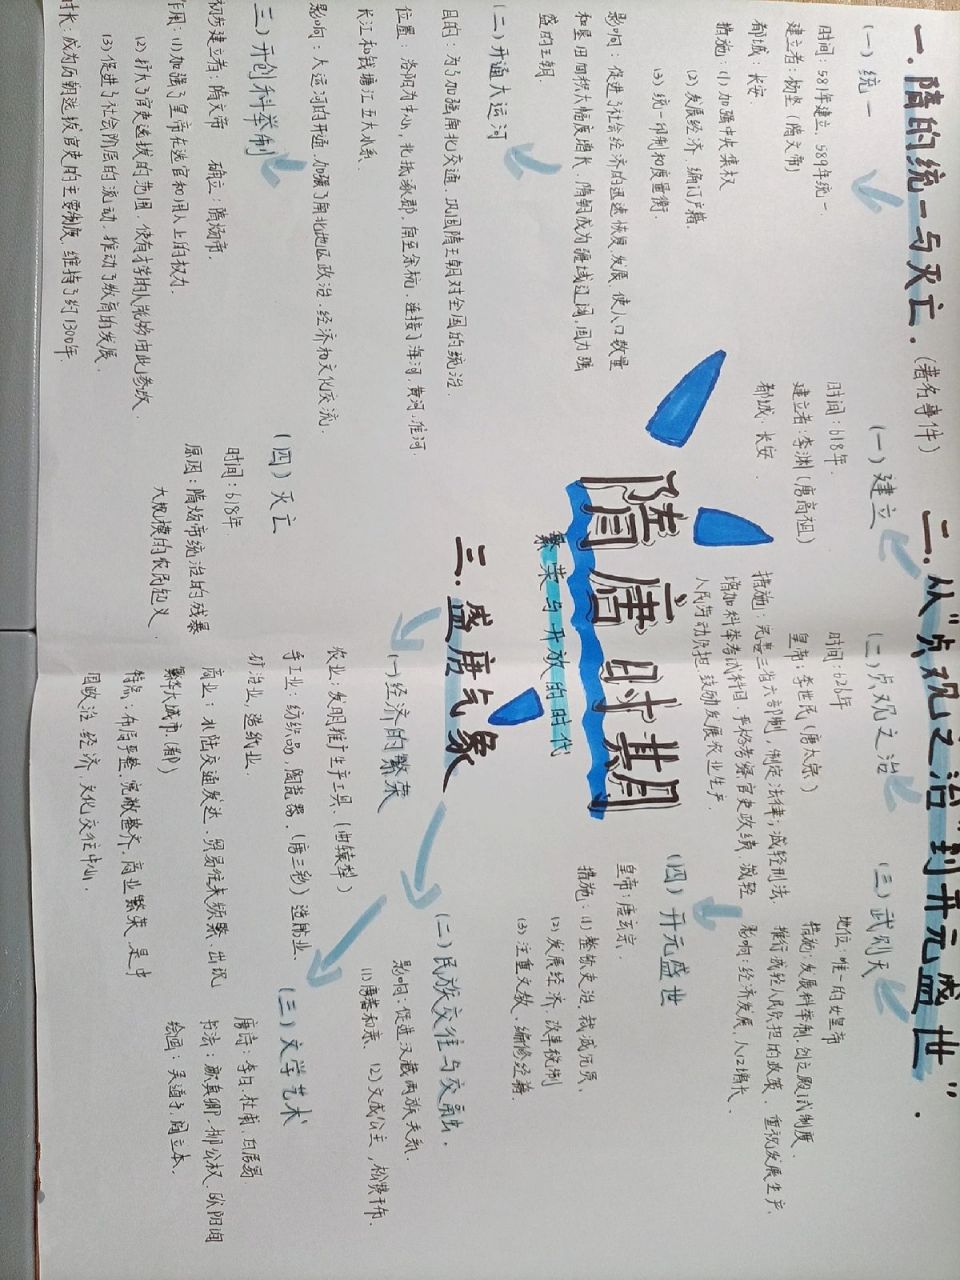 一.隋的统一与灭亡.(著名事件)
(一)统一
时间:581年建立.589年统一.
建立者:杨坚(隋文帝)
都城:长安.
措施:(1)加强中央集权
(2)发展经济.编订户籍.
(3)统一币制和度量衡.
影响:促进了社会经济的迅速恢复发展,使人口数量
和垦田面积大幅度增长,隋朝成为疆域辽阔,国力强
盛的王朝
(二)开通大运河
目的:为了加强南北交通,巩固隋王朝对全国的统治.
位置:洛阳为中心,北抵涿郡,南至余杭,连接了海河,黄河,淮河.
长江和钱塘江五大水系.
影响:大运河的开通,加强了南北地区政治.经济和文化交流.
三)开创科举制
初步建立者:隋文帝 确立:隋炀帝.
作用:(1)加强了皇帝在选官和用人上的权力.
(2)扩大了官吏选拔的范围,使有才学的人能够由此参政.
(3)促进了社会阶层的流动,推动了教育的发展.
时长:成为历朝选拔官吏的主要制度,维持了约1300年.
(四)灭亡
时间:618年
原因:隋炀帝统治的残暴
大规模的农民起义.
隋唐时期
繁荣与开放的时代
二.从"贞观之治"到开元盛世".
(一)建立
时间:618年.
建立者:李渊(唐高祖)
都城:长安
(二)贞观之治
时间:626年
皇帝:李世民(唐太宗)
措施:完善三省六部制,制定法律;减轻刑法
增加科举考试科目,严格考察官吏政绩,减轻
人民劳动负担,鼓励发展农业生产.
(三)武则天
地位:唯一的女皇帝
措施:发展科举制,创立殿试制度.
推行减轻人民负担的政策,重视发展生产.
影响:经济发展,人口增长.
(四)开元盛世
皇帝:唐玄宗.
措施:(1)整顿吏治,裁减冗员.
(2)发展经济,改革税制
(3)注重文教,编修经籍.
三.盛唐气象
(一)经济的繁荣
农业:发明推广生产工具.(曲辕犁)
手工业:纺织品,陶瓷器.(唐三彩)造船业.
矿冶业,造纸业.
商业:水陆交通发达,贸易往来频繁,出现
繁华大城市.(都)
特点:布局严整,宽敞整齐,商业繁荣,是中
国政治经济,文化交往中心.
(二)民族交往与交融.
影响:促进汉藏两族关系.
(1)唐蕃和亲.(2)文成公主,松赞干布.
(三)文学艺术
唐诗:李白.杜甫.白居易
书法:颜真卿.柳公权.欧阳询
绘画:吴道子.阎立本.